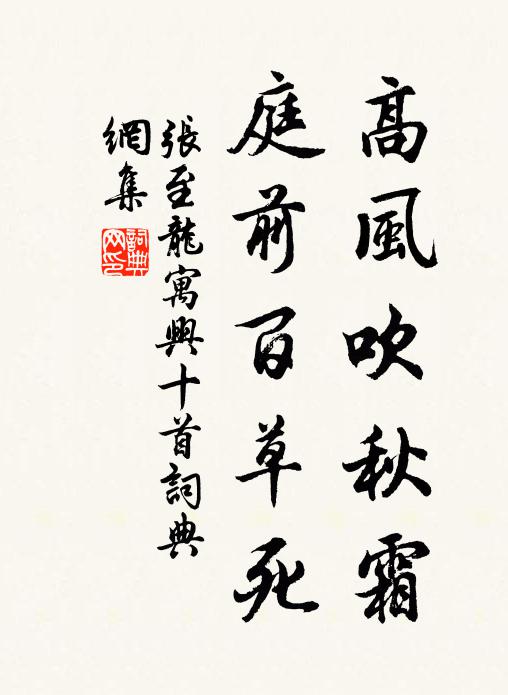 高風吹秋霜
庭前百草死
張至龍寓興十首詞典
網集
詞典
网印